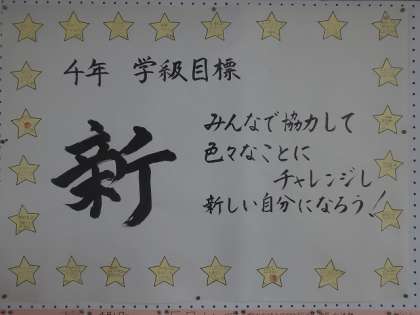 4年 学級目標
新
みんなで協力して
色々なことに
チャレンジし
新しい自分になろう!